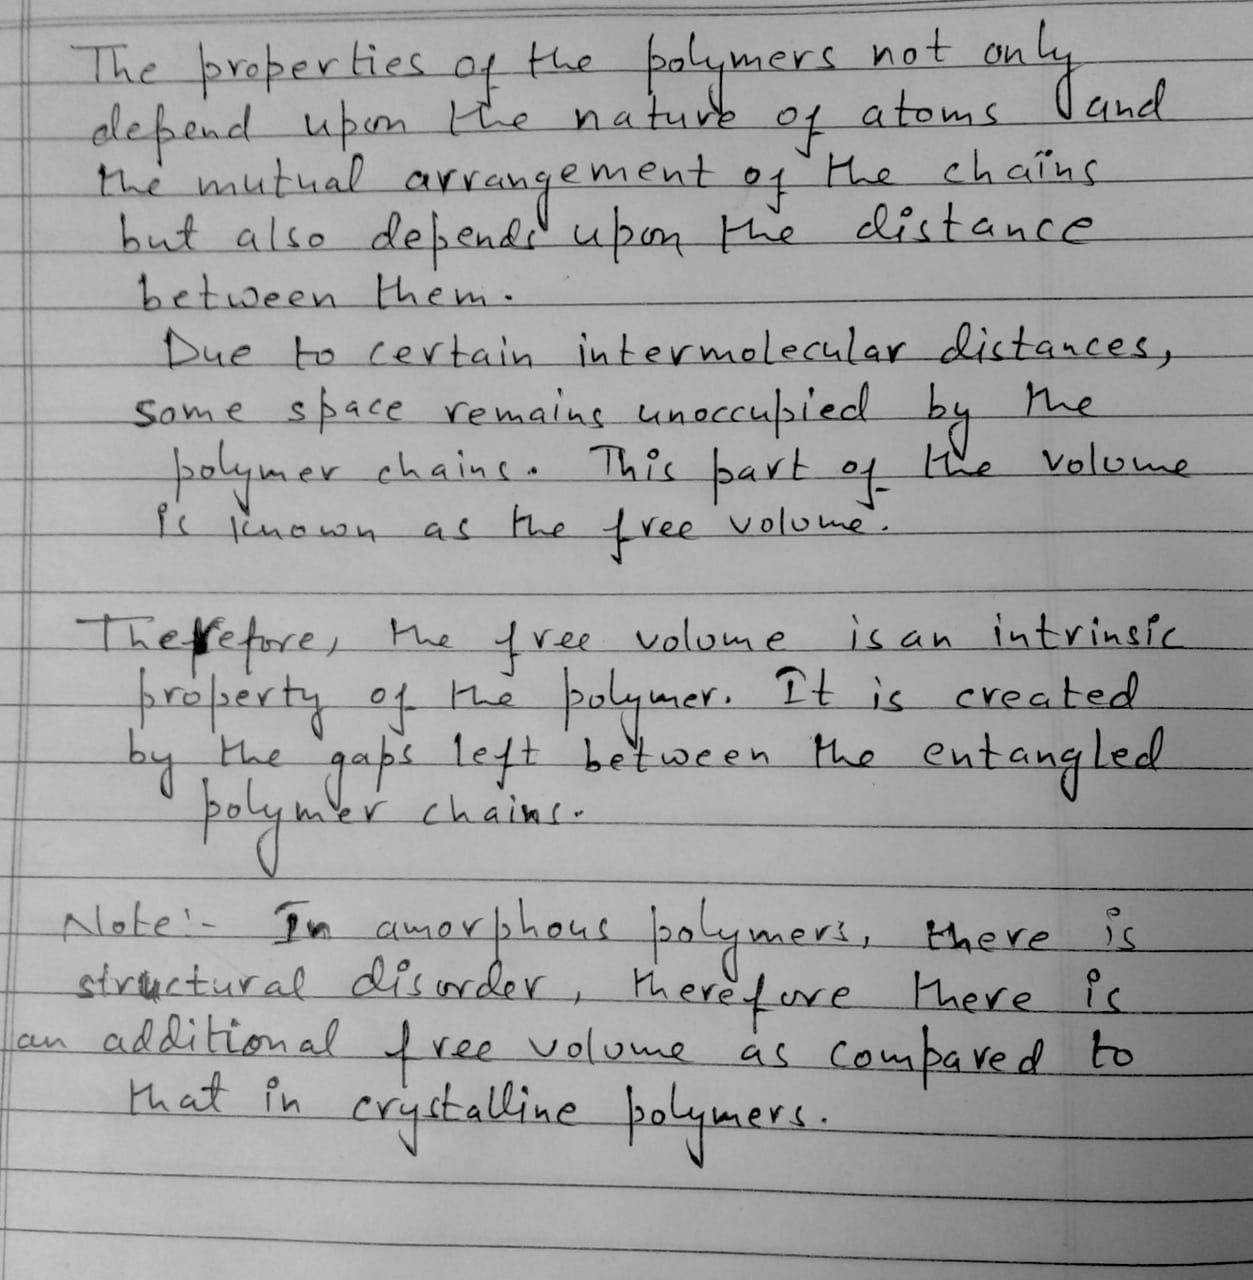 The properties of the polymers not only
depend upon the nature of atoms and
the mutual arrangement of the chains
but also depends upon the distance
between them.
Due to certain intermolecular distances,
some space remains unoccupied by the
polymer chains. This part of the volume
is known as the free volume.
Therefore, the free volume is an intrinsic
property of the polymer. It is created
by the gaps left between the entangled
polymer chains.
Note:- In amorphous polymers, there is
structural disorder, therefore there is
an additional free volume as compared to
that in crystalline polymers.